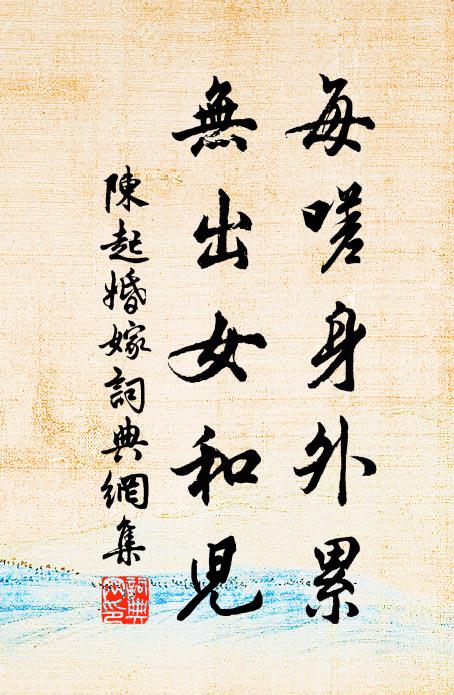 每嗟身外累
無出女和兒
陳起婚嫁詞典網集